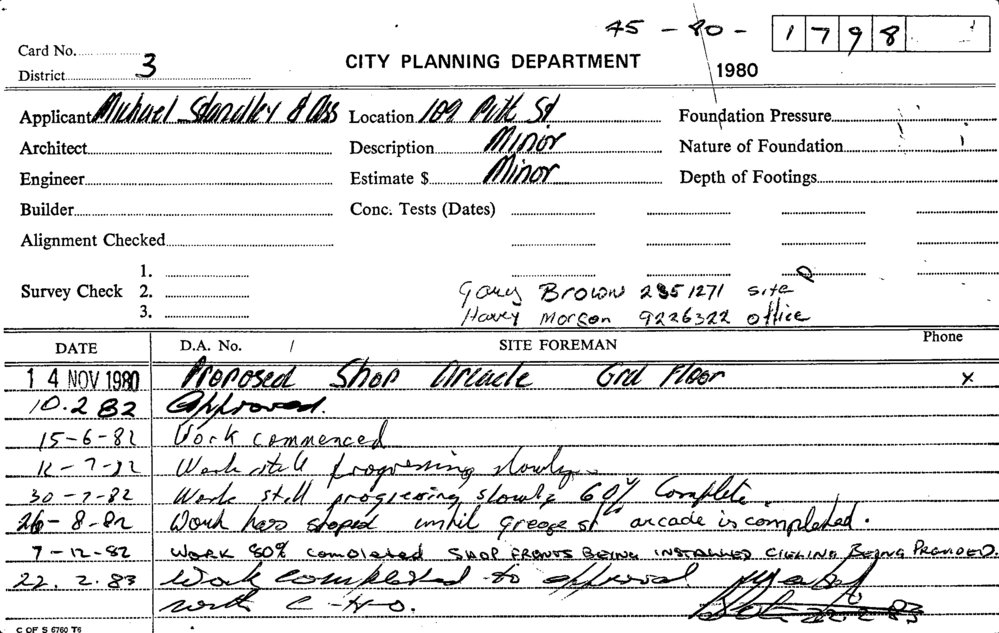 45 - 80 - 1798
Card No.
District 3
CITY PLANNING DEPARTMENT
1980
Applicant Michael Standley & Ass Location 109 Pitt St Foundation Pressure
Architect Description Minor Nature of Foundation
Engineer Estimate $ Minor Depth of Footings
Builder Conc. Tests (Dates)
Alignment Checked
1.
Survey Check 2. Gary Brown 2351271 site
3. Harvey Morgon 9226322 office
DATE D.A. No. / SITE FOREMAN Phone
14 NOV 1980 Proposed Shop Arcade Grd Floor x
10.2 82 Approved.
15-6-82 Work commenced
Work still progressing slowly
30-7-82 Work still progressing slowly 60% Complete.
26-8-82 Work has stoped until Greege st arcade is completed.
7-12-82 WORK 80% COMPLETED SHOP FRONTS BEING INSTALLED CIELING BEING PROVIDED.
22.2.83 Work completed to approval
22.2.83
C OF S 6760 T6